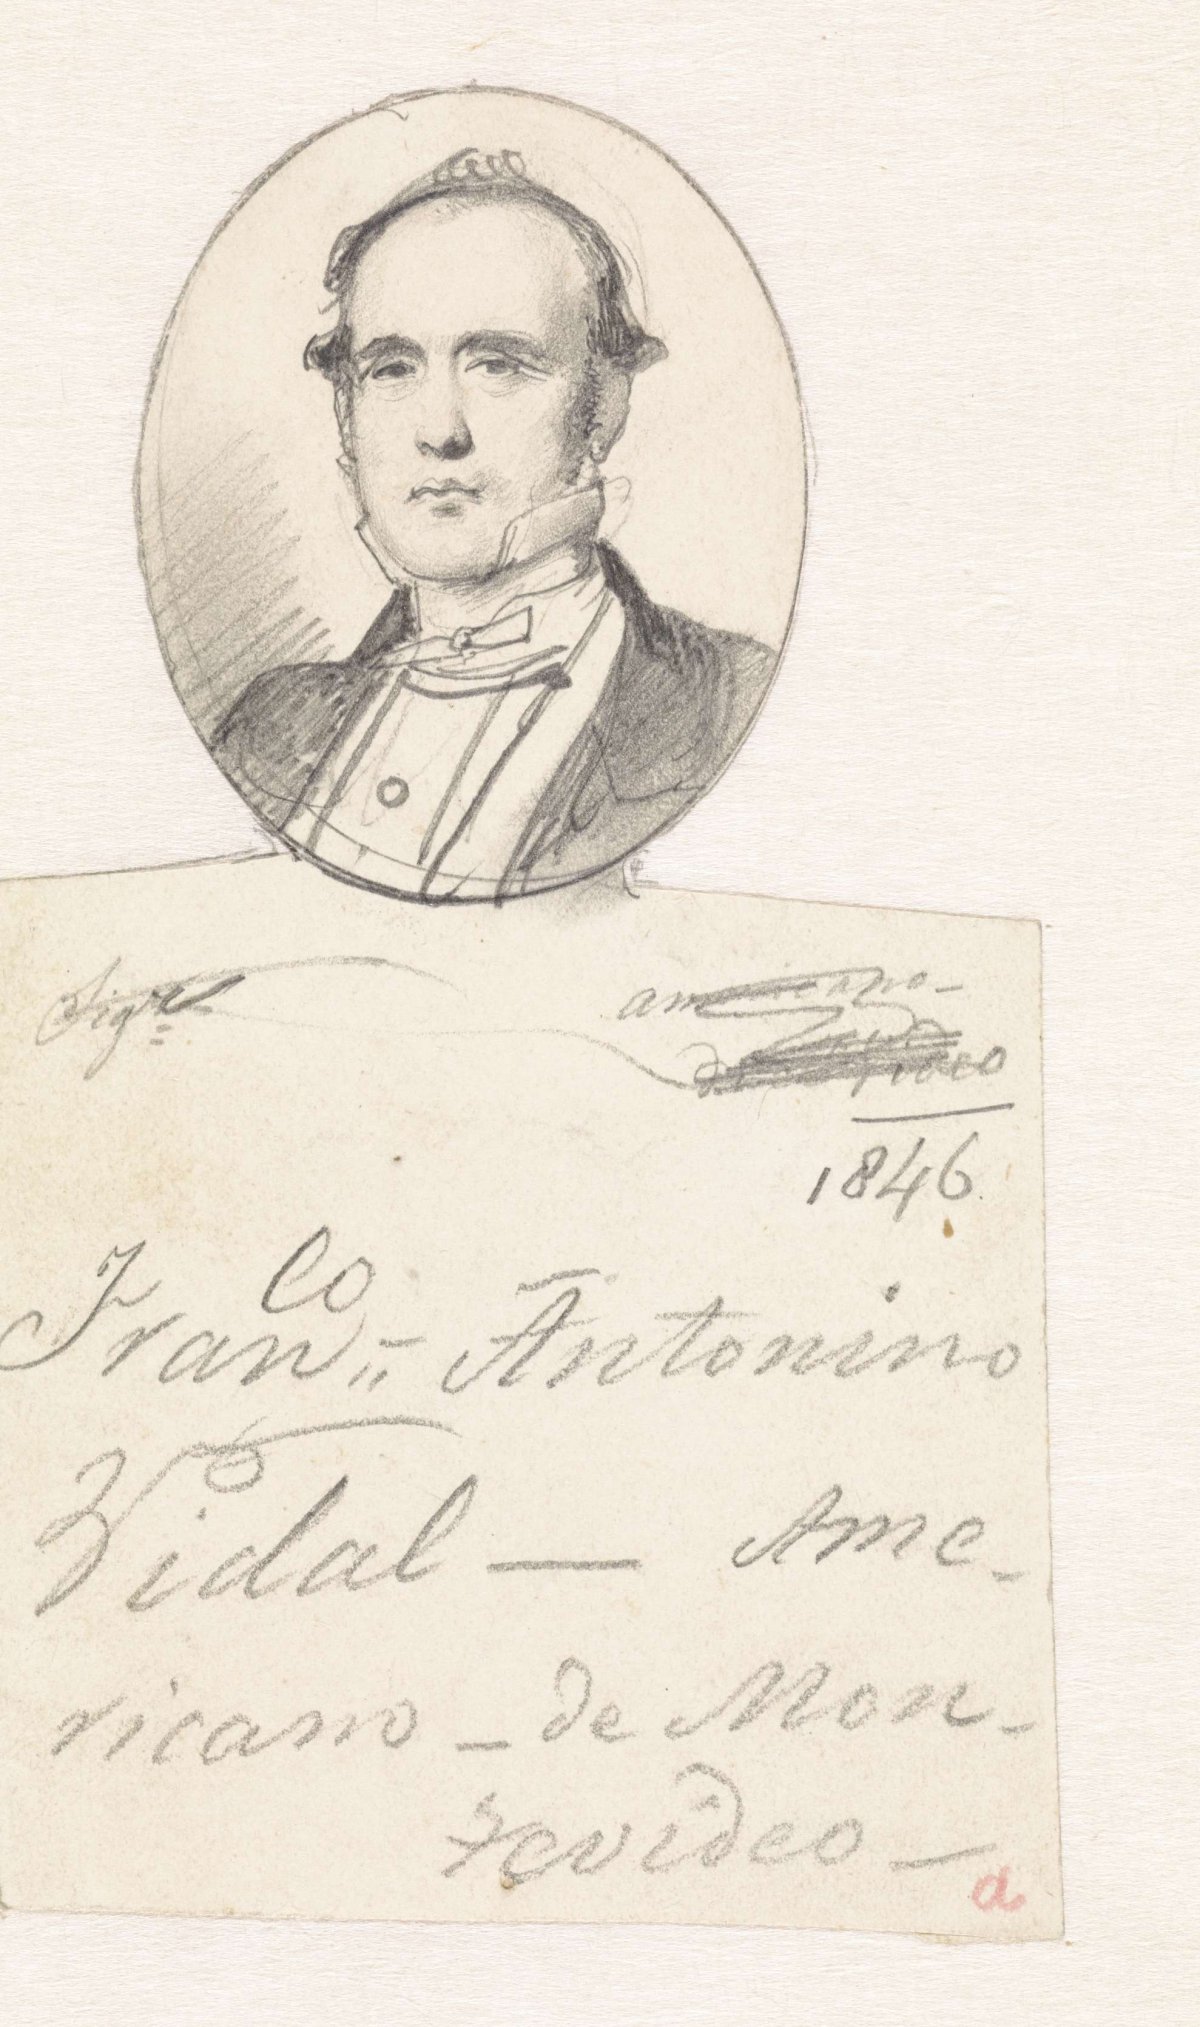 Sig.re
americano
1846
Fran.co Antonino
Vidal — Ame-
ricano - de Mon-
tevideo —
a